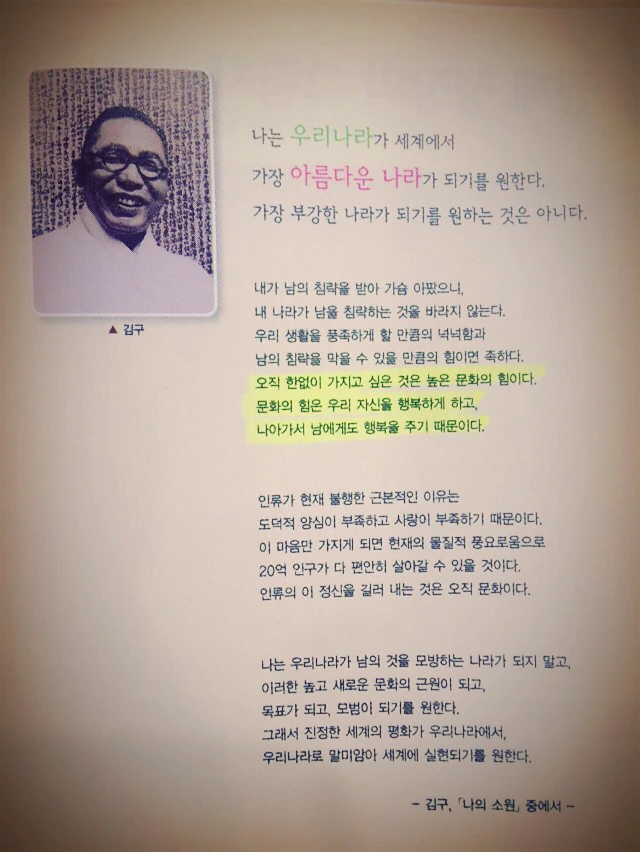 나는 우리나라가 세계에서
가장 아름다운 나라가 되기를 원한다.
가장 부강한 나라가 되기를 원하는 것은 아니다.
▲ 김구
내가 남의 침략을 받아 가슴 아팠으니,
내 나라가 남을 침략하는 것을 바라지 않는다.
우리 생활을 풍족하게 할 만큼의 넉넉함과
남의 침략을 막을 수 있을 만큼의 힘이면 족하다.
오직 한없이 가지고 싶은 것은 높은 문화의 힘이다.
문화의 힘은 우리 자신을 행복하게 하고,
나아가서 남에게도 행복을 주기 때문이다.
인류가 현재 불행한 근본적인 이유는
도덕적 양심이 부족하고 사랑이 부족하기 때문이다.
이 마음만 가지게 되면 현재의 물질적 풍요로움으로
20억 인구가 다 편안히 살아갈 수 있을 것이다.
인류의 이 정신을 길러 내는 것은 오직 문화이다.
나는 우리나라가 남의 것을 모방하는 나라가 되지 말고,
이러한 높고 새로운 문화의 근원이 되고,
목표가 되고, 모범이 되기를 원한다.
그래서 진정한 세계의 평화가 우리나라에서,
우리나라로 말미암아 세계에 실현되기를 원한다.
- 김구, 「나의 소원」 중에서 -